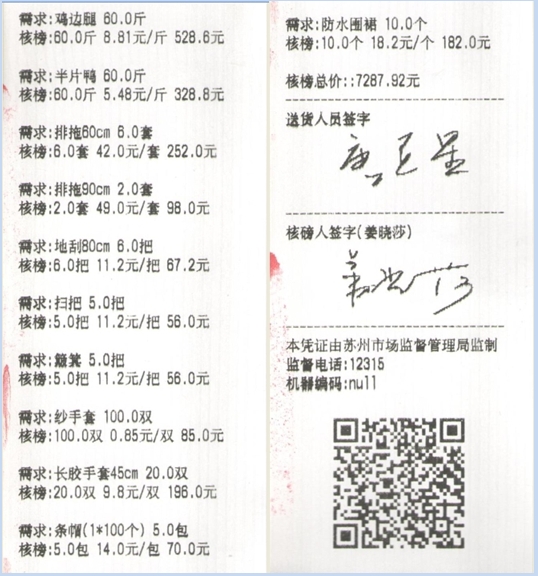 需求:鸡边腿 60.0斤
核榜:60.0斤 8.81元/斤 528.6元
需求:半片鸭 60.0斤
核榜:60.0斤 5.48元/斤 328.8元
需求:排拖60cm 6.0套
核榜:6.0套 42.0元/套 252.0元
需求:排拖90cm 2.0套
核榜:2.0套 49.0元/套 98.0元
需求:地刮80cm 6.0把
核榜:6.0把 11.2元/把 67.2元
需求:扫把 5.0把
核榜:5.0把 11.2元/把 56.0元
需求:簸箕 5.0把
核榜:5.0把 11.2元/把 56.0元
需求:纱手套 100.0双
核榜:100.0双 0.85元/双 85.0元
需求:长胶手套45cm 20.0双
核榜:20.0双 9.8元/双 196.0元
需求:条帽(1*100个) 5.0包
核榜:5.0包 14.0元/包 70.0元
需求:防水围裙 10.0个
核榜:10.0个 18.2元/个 182.0元
核榜总价::7287.92元
送货人员签字
核磅人签字(姜晓莎)
姜晓莎
本凭证由苏州市场监督管理局监制
监督电话:12315
机器编码:null